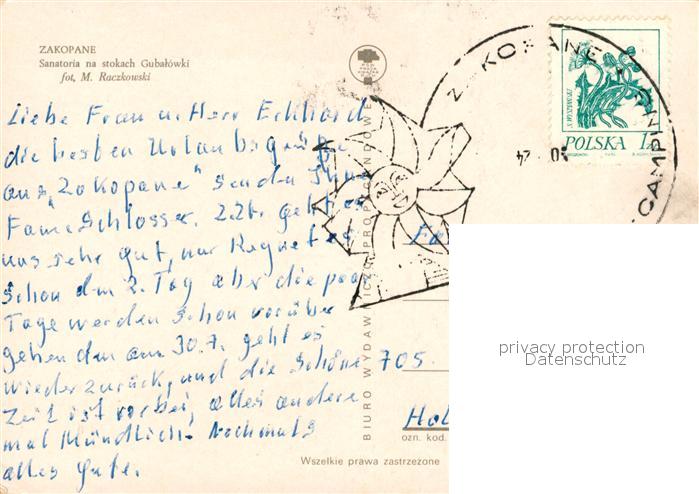 ZAKOPANE
Sanatoria na stokach Gubałówki
fot. M. Raczkowski
Liebe Frau u. Herr Eckhard
die besten Urlaubsgrüße
aus "Zakopane" senden Ihnen
Fam. Schlosser. Z.Zt. geht es
uns sehr gut, nur Regnet es
schon den 2. Tag aber die paar
Tage werden schon vorüber
gehen denn am 30.7. geht es
wieder zurück, und die schöne
Zeit ist vorbei, alles andere
mal Mündlich. Nochmals
alles Gute.
BIURO WYDAWNICZO PROPAGANDOWE
ZAKOPANE
CAMPING
POLSKA 1zł
705.
ozn. kod.
Wszelkie prawa zastrzeżone
privacy protection
Datenschutz